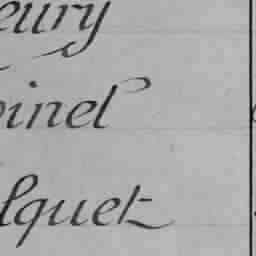 eury
inel
lquet